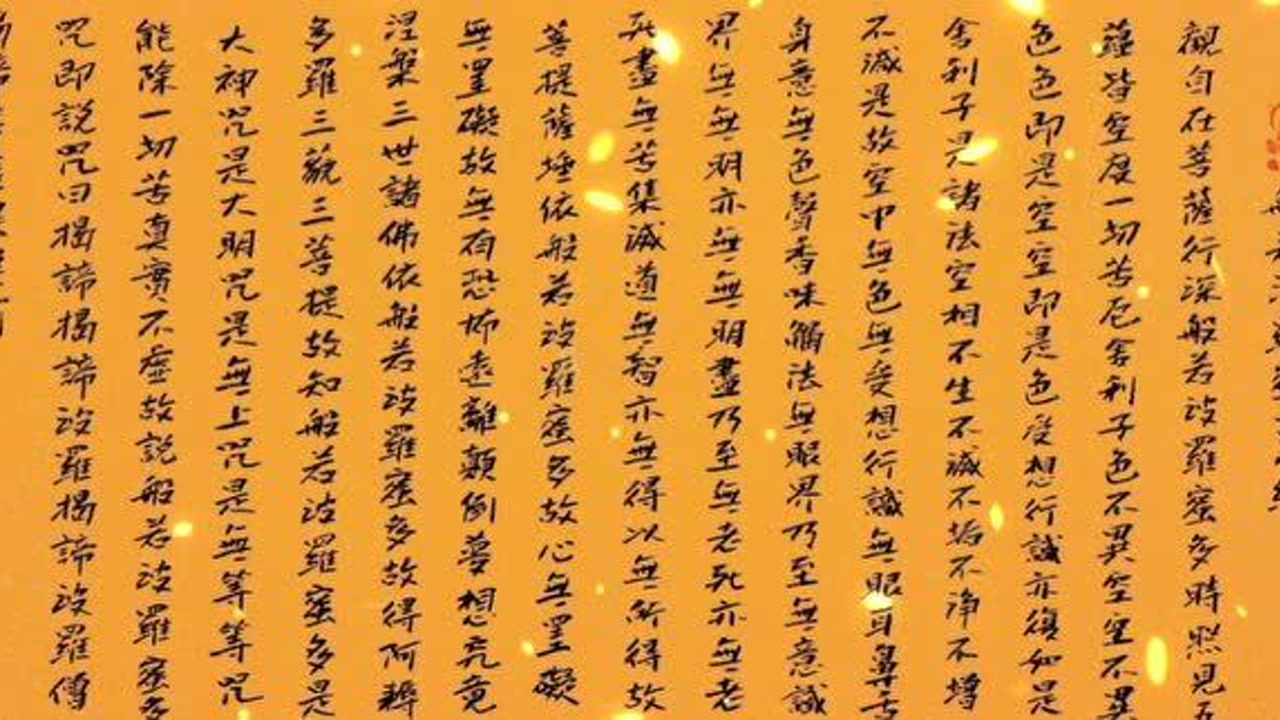 觀自在菩薩行深般若波羅蜜多時照見五
蘊皆空度一切苦厄舍利子色不異空空不異
色色即是空空即是色受想行識亦復如是
舍利子是諸法空相不生不滅不垢不淨不增
不減是故空中無色無受想行識無眼耳鼻舌
身意無色聲香味觸法無眼界乃至無意識
界無無明亦無無明盡乃至無老死亦無老
死盡無苦集滅道無智亦無得以無所得故
菩提薩埵依般若波羅蜜多故心無罣礙
無罣礙故無有恐怖遠離顛倒夢想究竟
涅槃三世諸佛依般若波羅蜜多故得阿耨
多羅三藐三菩提故知般若波羅蜜多是
大神咒是大明咒是無上咒是無等等咒
能除一切苦真實不虛故說般若波羅蜜多
咒即說咒曰揭諦揭諦波羅揭諦波羅僧